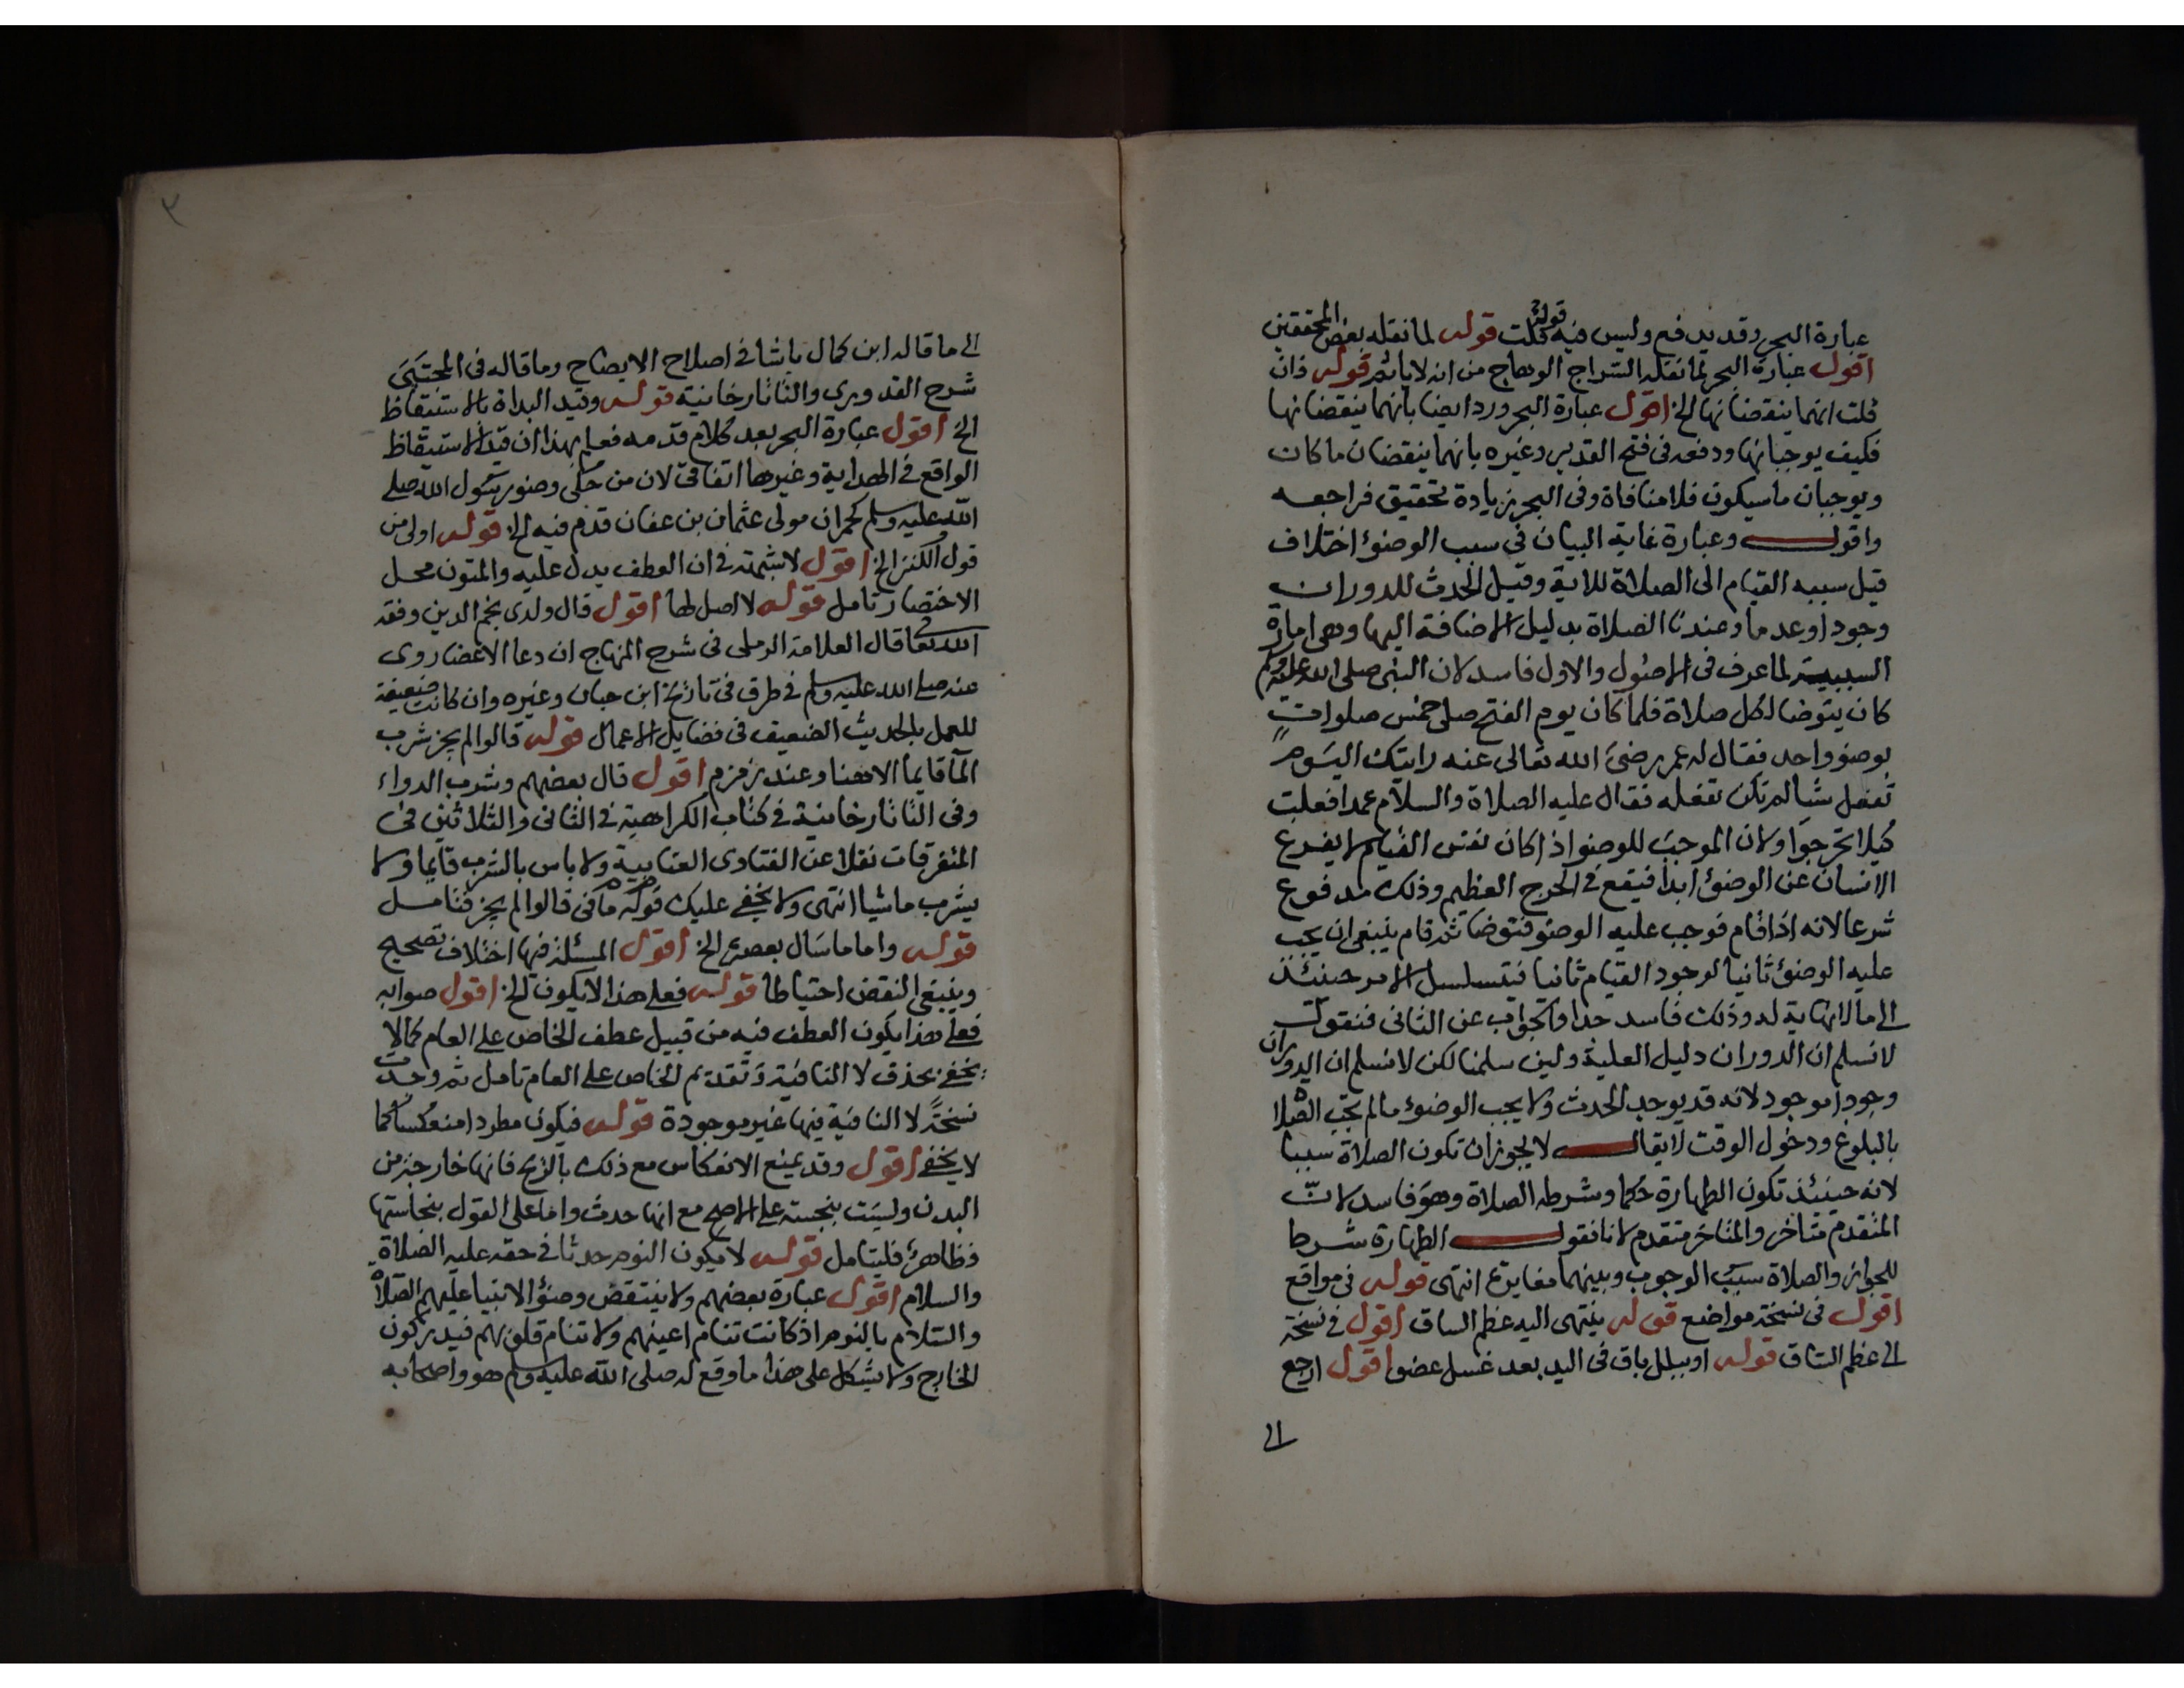 عبارة البحر وقد يدفع وليس فيه قوله قلت قوله لما نقله بعض المحققين
اقول عبارة البحر لما نقله السراج الوهاج من انه لا ياثم قوله فان
قلت انهما ينقضانها الخ اقول عبارة البحر ورد ايضا بانهما ينقضانها
فكيف يوجبانها ودفعه في فتح القدير وغيره بانهما ينقضان ما كان
ويوجبان ما سيكون فلا منافاة وفي البحر زيادة تحقيق فراجعه
واقول وعبارة غاية البيان في سبب الوضوء اختلاف
قيل سببه القيام الى الصلاة للاية وقيل الحدث للدوران
وجودا وعدما وعندنا الصلاة بدليل الاضافة اليها وهي امارة
السببية لما عرف في الاصول والاول فاسد لان النبي صلى الله عليه وسلم
كان يتوضا لكل صلاة فلما كان يوم الفتح صلى خمس صلوات
بوضوء واحد فقال له عمر رضي الله تعالى عنه رايتك اليوم
تفعل شيا لم تكن تفعله فقال عليه الصلاة والسلام عمدا فعلت
كيلا تحرجوا ولان الموجب للوضوء اذا كان نفس القيام لا يفرغ
الانسان عن الوضوء ابدا فيقع في الحرج العظيم وذلك مدفوع
شرعا لانه اذا قام فوجب عليه الوضوء فتوضا ثم قام ينبغي ان يجب
عليه الوضوء ثانيا لوجود القيام ثانيا فيتسلسل الامر حينئذ
الى ما لا نهاية له وذلك فاسد جدا والجواب عن الثاني فنقول
لا نسلم ان الدوران دليل العلية ولين سلمنا لكن لا نسلم ان الدوران
وجودا موجود لانه قد يوجد الحدث ولا يجب الوضوء ما لم تجب الصلاة
بالبلوغ ودخول الوقت لا يقال لا يجوز ان تكون الصلاة سببا
لانه حينئذ تكون الطهارة حكما وشرطه الصلاة وهو فاسد لان
المتقدم متاخر والمتاخر متقدم لانا نقول الطهارة شرط
للجواز والصلاة سبب الوجوب وبينهما مغايرة انتهى قوله في مواقع
اقول في نسخة مواضع قوله ينتهى اليه عظم الساق اقول في نسخة
الى عظم الساق قوله او ببلل باق في اليد بعد غسل عضو اقول ارجع
الى
٣
الى ما قاله ابن كمال باشا في اصلاح الايضاح وما قاله في المجتبى
شرح القدوري والتاتارخانية قوله وقيد البداة بالاستيقاظ
الخ اقول عبارة البحر بعد كلام قدمه فعلم بهذا ان قيد الاستيقاظ
الواقع في الهداية وغيرها اتفاقي لان من حكى وضوء رسول الله صلى
الله عليه وسلم كحمران مولى عثمان بن عفان قدم فيه الخ قوله اولى من
قول الكنز الخ اقول لا شبهة في ان العطف يدل عليه والمتون محل
الاختصار تامل قوله لا اصل لها اقول قال ولدى نجم الدين وفقه
الله تعالى قال العلامة الرملي في شرح المنهاج ان دعا الاعضا روى
عنه صلى الله عليه وسلم في طرق في تاريخ ابن حبان وغيره وان كانت ضعيفة
للعمل بالحديث الضعيف في فضايل الاعمال قوله قالوا لم يجز شرب
المآ قايما الا هنا وعند زمزم اقول قال بعضهم وشرب الدواء
وفي التاتارخانية في كتاب الكراهية في الثاني والثلاثين في
المتفرقات نقلا عن الفتاوى العتابية ولا باس بالشرب قايما ولا
يشرب ماشيا انتهى ولا يخفى عليك قوله ما في قالوا لم يجز فتامل
قوله واما ما سال بعصر الخ اقول المسئلة فيها اختلاف تصحيح
وينبغي النقض احتياطا قوله فعلى هذا لا يكون الخ اقول صوابه
فعلى هذا يكون العطف فيه من قبيل عطف الخاص على العام كما لا
يخفى بحذف لا النافية وتقديم الخاص على العام تامل ثم وجدت
نسخة لا النافية فيها غير موجودة قوله فيكون مطردا منعكسا كما
لا يخفى اقول وقد يمنع الانعكاس مع ذلك بالريح فانها خارجة من
البدن وليست بنجسة على الاصح مع انها حدث واما على القول بنجاستها
فظاهر فليتامل قوله لا يكون النوم حدثا في حقه عليه الصلاة
والسلام اقول عبارة بعضهم ولا ينتقض وضوء الانبيا عليهم الصلاة
والسلام بالنوم اذ كانت تنام اعينهم ولا تنام قلوبهم فيدركون
الخارج ولا يشكل على هذا ما وقع له صلى الله عليه وسلم هو واصحابه